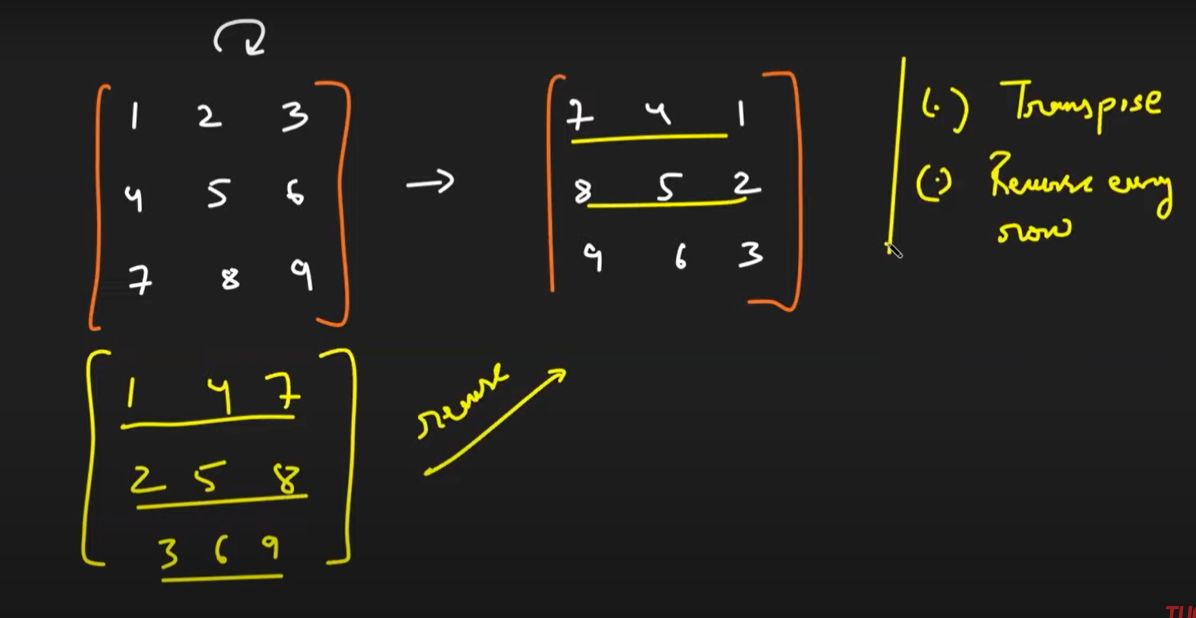 1 2 3
4 5 6
7 8 9
→
7 4 1
8 5 2
9 6 3
(.) Transpise
(.) Reverse every
row
1 4 7
2 5 8
3 6 9
reverse